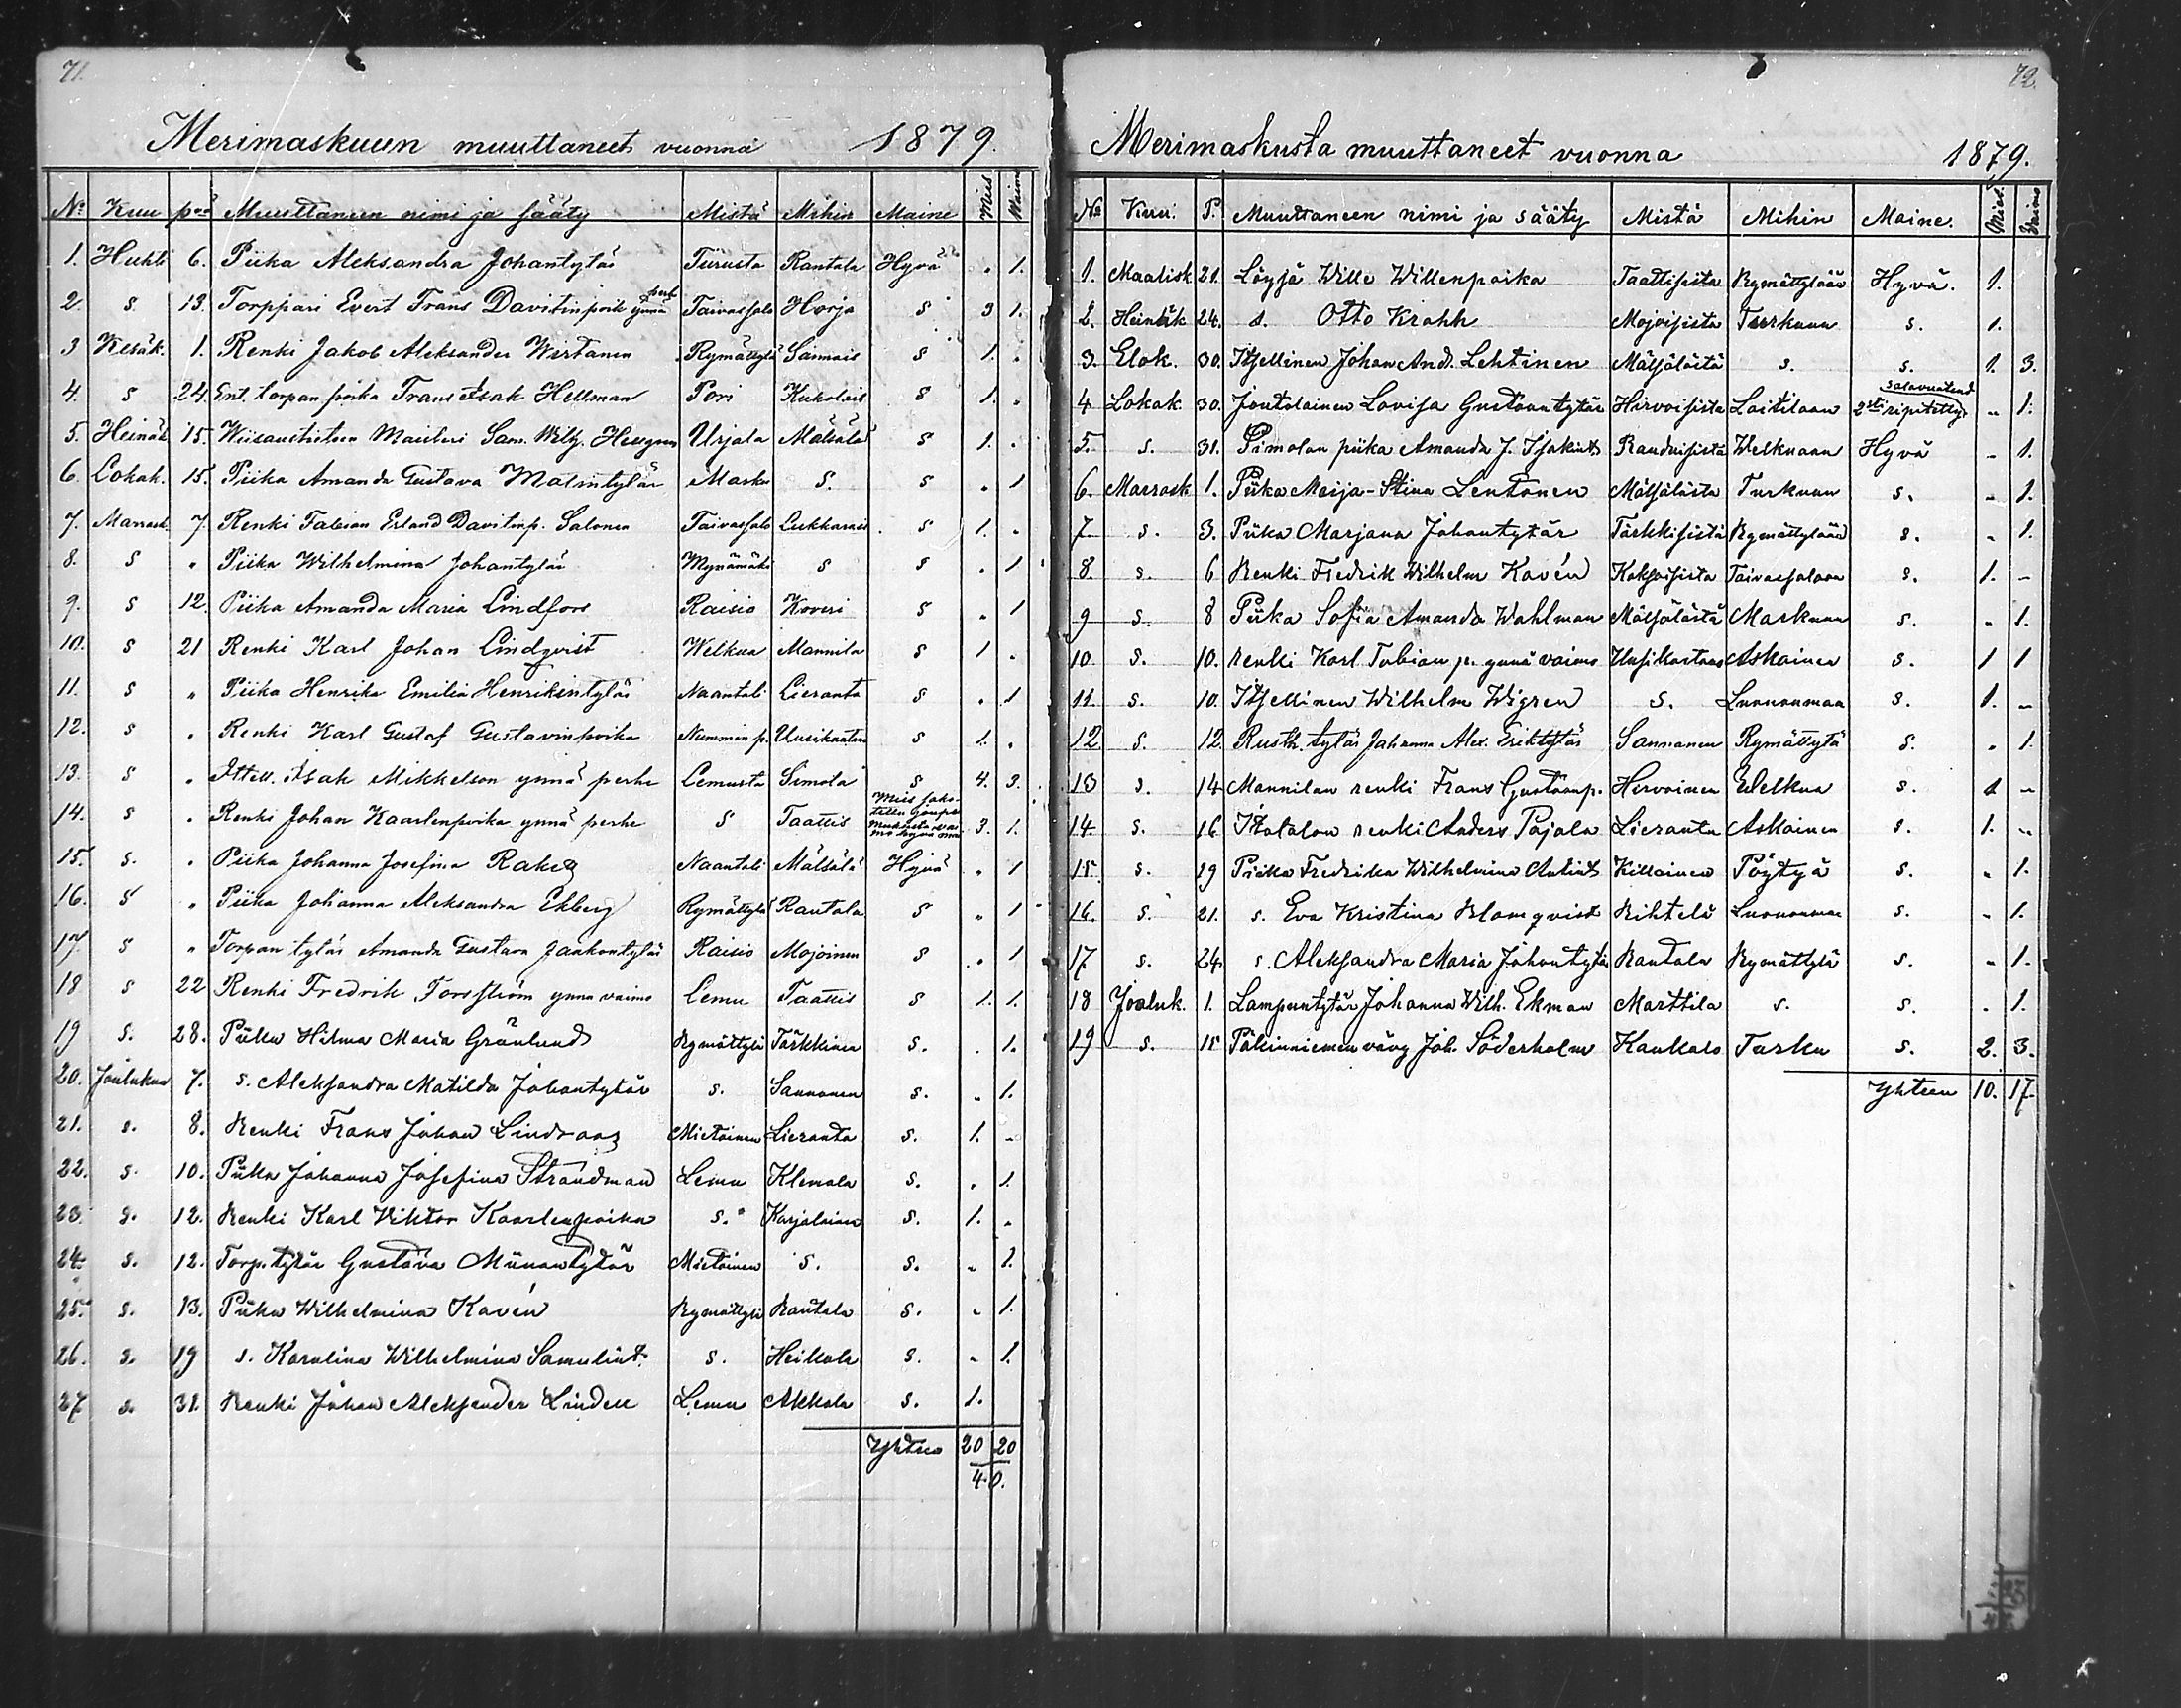 71.
Merimaskuun muuttaneet vuonna 1879.
No Kuu pvä Muuttaneen nimi ja sääty Mistä Mihin Maine Mies Waimo
1. Huhti 6. Piika Aleksandra Johantytär Turusta Rantala Hyvä . 1.
2. s. 13. Torppari Evert Frans Davitinpoik ynnä perh Taivassalo Horja s 3 1.
3 Kesäk. 1. Renki Jakob Aleksander Wirtanen Rymättylä Sannais s 1. .
4. s 24. Ent. torpan poika Frans Isak Hellman Pori Kukolais s 1. .
5. Heinäk 15. Mauteri Sam. Wilh. Urjala Mälsälä s 1. .
6. Lokak. 15. Piika Amanda Gustava Matintytär Masku s. s . 1
7. Marrask. 7. Renki Fabian Erland Davitinp. Salonen Taivassalo Lukkarais s 1. .
8. s " Piika Wilhelmina Johantytär Mynämäki s s . 1
9. s 12. Piika Amanda Maria Lindfors Raisio Koveri s . 1
10. s 21 Renki Karl Johan Lindqvist Welkua Mannila s 1 .
11. s " Piika Henrika Emilia Henrikintytär Naantali Lieranta s . 1
12. s " Renki Karl Gustaf Gustavinpoika Nummin p. Uusikartan s 1. .
13. s " Ittell. Isak Mikkelson ynnä perhe Lemusta Simola s 4. 3.
14. s " Renki Johan Kaarlenpoika ynnä perhe s Taattis Mies 3. 1.
15. s. " Piika Johanna Josefina Naantali Mälsälä Hyvä . 1
16. s " Piika Johanna Aleksandra Ekberg Rymättylä Rantala s " 1
17. s " Torpan tytär Amanda Gustava Jaakontytär Raisio Mojoinen s . 1
18 s 22 Renki Fredrik Forsström ynnä vaimo Lemu Taattis s 1. 1.
19 s. 28. Piika Hilma Maria Grönlund Rymättylä Tärkkinen s. . 1.
20. Joulukuu 7. s. Aleksandra Matilda Johantytär s. Sannonen s. " 1.
21. s. 8. Renki Frans Johan Lindroos Mietoinen Lieranta s. 1. -
22. s. 10. Piika Johanna Josefina Strandman Lemu Klemola s. . 1.
23. s. 12. Renki Karl Viktor Kaarlenpoika s. Karjalainen s. 1. .
24. s. 12. Torp. tytär Gustava Manuntytär Mietoinen s. s. " 1.
25. s. 13. Piika Wilhelmina Kavén Rymättylä Rantala s. " 1.
26. s. 19 s. Karolina Wilhelmina Samulint. s. Heikola s. " 1.
27 s. 31. Renki Johan Aleksander Lindell Lemu Akkola s. 1.
Yhteen 20 20
40.
72.
Merimaskusta muuttaneet vuonna 1879.
No Kuu. P. Muuttaneen nimi ja sääty Mistä Mihin Maine. Mies. Vaimo
1. Maalisk 21. Löysä Wille Willenpoika Taattisista Rymättylään Hyvä. 1.
2. Heinäk 24. s. Otto Krahh Mojoisista Turkuun s. 1.
3. Elok. 30. Itsellinen Johan And. Lehtinen Mälsälästä s. s. 1. 3.
4 Lokak. 30. Joutolainen Lovisa Gustaantytär Hirvoisista Laitilaan salavuoteud 2sti ripitetty. " 1.
5. s. 31. Simolan piika Amanda J. Isakint. Welkuaan Hyvä - 1.
6. Marrask 1. Piika Maija-Stina Lentonen Mälsälästä Turkuun s. " 1.
7 s. 3. Piika Marjana Johantytär Tärkkisistä Rymättylään s. " 1.
8. s. 6 Renki Fredrik Wilhelm Kavén Koksoisista Taivassaloon s. 1. -
9 s. 8 Piika Sofia Amanda Wahlman Mälsälästä Maskuun s. " 1.
10. s. 10. Renki Karl Tobian p. ynnä vaimo Uusikartano Askainen s. 1 1
11. s. 10. Itsellinen Wilhelm Wigren s. Luonnonmaa s. 1. -
12 s. 12. Rusth. tytär Johanna Alex. Eriktytär Sannanen Rymättylä s. " 1.
13 s. 14 Mannilan renki Frans Gustaanp. Hirvoinen Welkua s. 1 -
14 s. 16 Itotalon renki Anders Pajala Lieranta Askainen s. 1. "
15. s. 19 Piika Fredrika Wilhelmina Antint Killainen Pöytyä s. " 1.
16. s. 21. s. Eva Kristina Blomqvist Rihtelä Luonnonmaa s. - 1.
17. s. 24 s. Aleksandra Maria Johantytär Rantala Rymättylä s. " 1.
18 Jouluk. 1. Lampuntytär Johanna Wilh. Ekman Marttila s. s. . 1.
19 s. 15 Päkinniemen vävy Joh. Söderholm Kaukalo Turku s. 2. 3.
Yhteen 10. 17.